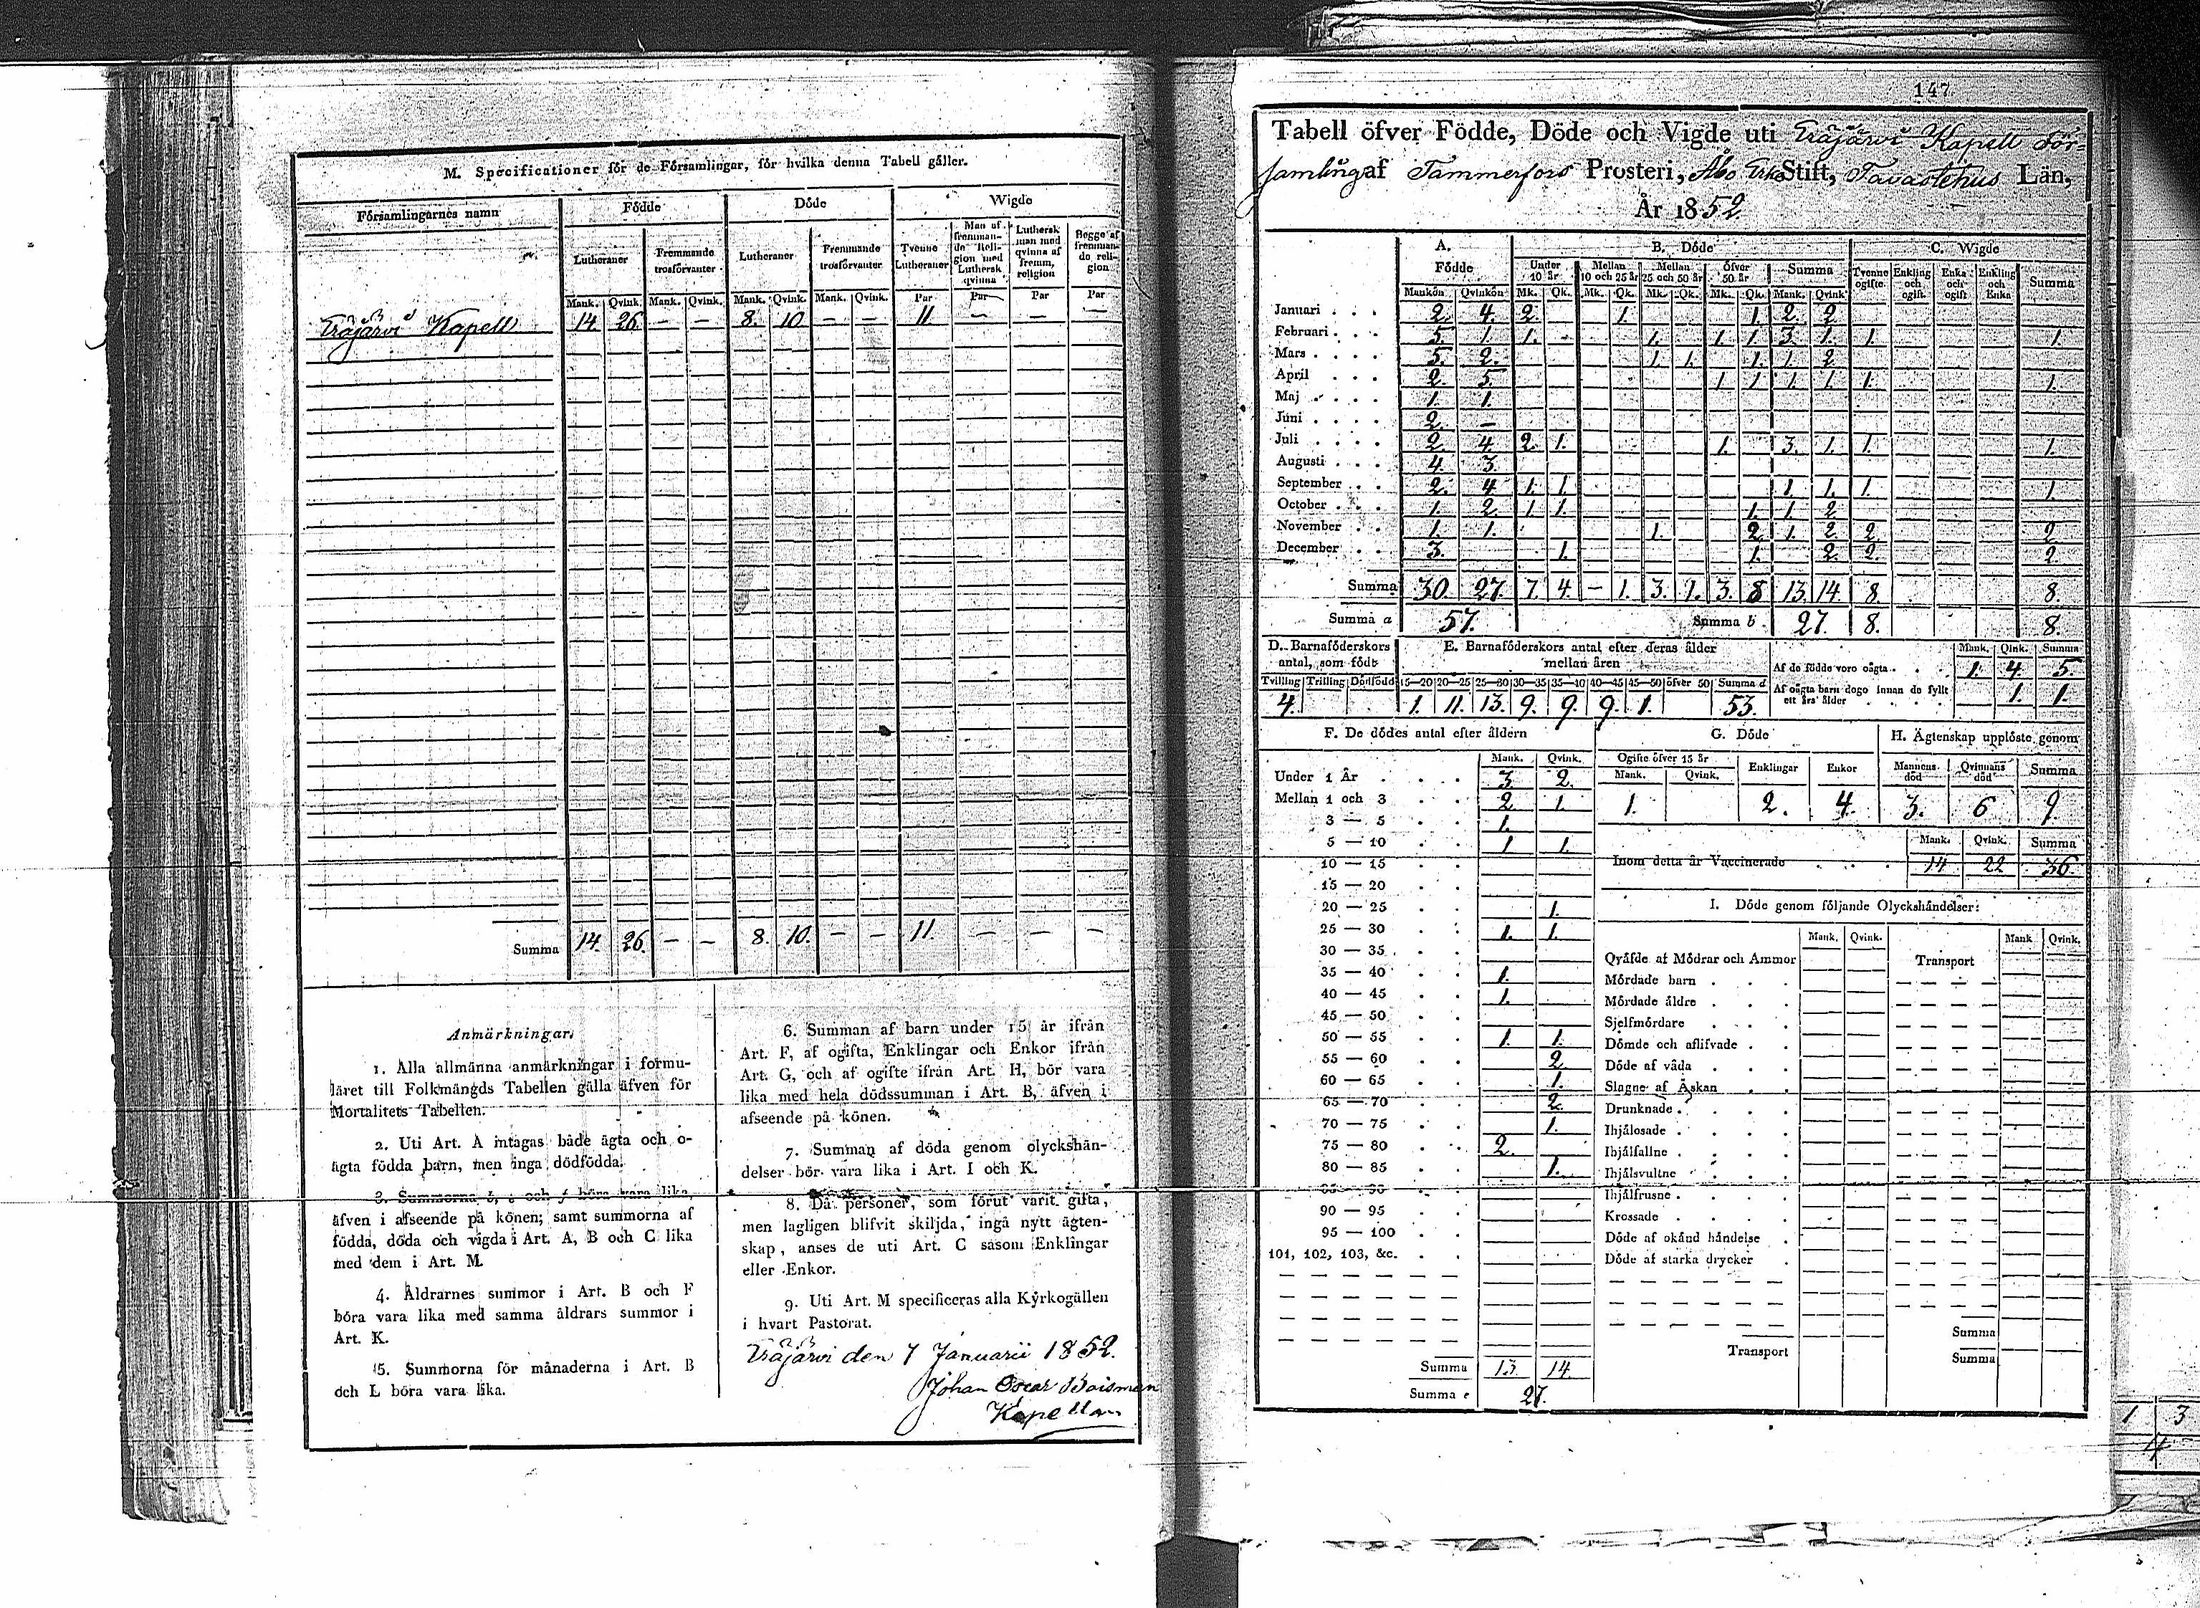 M. Specificationer för de Församlingar, för hvilka denna Tabell gäller.
Församlingarnes namn | Födde | Döde | Wigde
Lutheraner | Fremmande trosförvanter | Lutheraner | Fremmande trosförvanter | Tvenne Lutheraner | Man af fremmande Religion med Luthersk qvinna | Luthersk man med qvinna af fremm. religion | Begge af fremmande religion
Mank. | Qvink. | Mank. | Qvink. | Mank. | Qvink. | Mank. | Qvink. | Par | Par | Par | Par
Eräjärvi Kapell | 14. | 26. | — | — | 8. | 10. | — | — | 11 | — | — | —
Summa | 14. | 26. | — | — | 8. | 10. | — | — | 11. | — | — | —
Anmärkningar.
1. Alla allmänna anmärkningar i formu-
läret till Folkmängds Tabellen gälla äfven för
Mortalitets Tabellen.
2. Uti Art. A intagas både ägta och o-
ägta födda barn, men inga dödfödda.
3. Summorna b, e och f böra vara lika,
äfven i afseende på könen; samt summorna af
födda, döda och vigda i Art. A, B och C lika
med dem i Art. M.
4. Åldrarnes summor i Art. B och F
böra vara lika med samma åldrars summor i
Art. K.
5. Summorna för månaderna i Art. B
och L böra vara lika.
6. Summan af barn under 15 år ifrån
Art. F, af ogifta, Enklingar och Enkor ifrån
Art. G, och af ogifte ifrån Art. H, bör vara
lika med hela dödssumman i Art. B, äfven i
afseende på könen.
7. Summan af döda genom olyckshän-
delser bör vara lika i Art. I och K.
8. Då personer, som förut varit gifta,
men lagligen blifvit skiljda, ingå nytt ägten-
skap, anses de uti Art. C såsom Enklingar
eller Enkor.
9. Uti Art. M specificeras alla Kyrkogällen
i hvart Pastorat.
Eräjärvi den 7 Januarii 1852.
Johan Oscar Boisman
Kapellan
147
Tabell öfver Födde, Döde och Vigde uti Eräjärvi Kapell För-
samling af Tammerfors Prosteri, Åbo Erke Stift, Tavastehus Län,
År 1852
A. Födde | B. Döde | C. Wigde
Under 10 år | Mellan 10 och 25 år | Mellan 25 och 50 år | Öfver 50 år | Summa | Tvenne ogifte | Enkling och ogift | Enka och ogift | Enkling och Enka | Summa
Mankön | Qvinkön | Mk. | Qk. | Mk. | Qk. | Mk. | Qk. | Mk. | Qk. | Mank. | Qvink
Januari . . . | 2. | 4. | 2. | | | 1. | | | | 1. | 2. | 2.
Februari . . . | 5. | 1. | 1. | | | | 1. | | 1. | 1. | 3. | 1. | 1. | | | | 1.
Mars . . . . | 5. | 2. | | | | | 1. | 1. | | 1. | 1. | 2.
April . . . | 2. | 5. | | | | | | | 1. | 1. | 1. | 1. | 1. | | | | 1.
Maj . . . . | 1. | 1.
Juni . . . . | 2. | —
Juli . . . . | 2. | 4. | 2. | 1. | | | | | 1. | | 3. | 1. | 1. | | | | 1.
Augusti . . . | 4. | 3.
September . . | 2. | 4 | 1. | 1. | | | | | | | 1. | 1. | 1. | | | | 1.
October . . . | 1. | 2. | 1. | 1. | | | | | | 1. | 1. | 2.
November . . | 1. | 1. | | | | | 1. | | | 2. | 1. | 2. | 2. | | | | 2.
December . . | 3. | | | 1. | | | | | | 1. | | 2. | 2. | | | | 2.
Summa | 30. | 27. | 7. | 4. | — | 1. | 3. | 1. | 3. | 8 | 13. | 14. | 8. | | | | 8.
Summa a | 57. | Summa b | 27. | 8. | | | | 8.
D. Barnaföderskors antal, som födt
Tvilling | Trilling | Dödfödd
4.
E. Barnaföderskors antal efter deras ålder mellan åren
15—20 | 20—25 | 25—30 | 30—35 | 35—40 | 40—45 | 45—50 | öfver 50 | Summa d
1. | 11. | 13. | 9. | 9. | 9. | 1. | | 53.
Mank. | Qink. | Summa
Af de födde voro oägta . . . | 1. | 4. | 5.
Af oägta barn dogo innan de fyllt ett års ålder . . . . | | 1. | 1.
F. De dödes antal efter åldern
Mank. | Qvink.
Under 1 År | 3. | 2.
Mellan 1 och 3 | 2 | 1.
3 — 5 | 1.
5 — 10 | 1 | 1.
10 — 15
15 — 20
20 — 25 | | 1.
25 — 30 | 1. | 1.
30 — 35
35 — 40 | 1.
40 — 45 | 1.
45 — 50
50 — 55 | 1. | 1.
55 — 60 | | 2.
60 — 65 | | 1.
65 — 70 | | 2.
70 — 75 | | 1.
75 — 80 | 2.
80 — 85 | | 1.
85 — 90
90 — 95
95 — 100
101, 102, 103, &c.
Summa | 13. | 14.
Summa e | 27.
G. Döde
Ogifte öfver 15 år | Enklingar | Enkor
Mank. | Qvink.
1. | | 2. | 4.
H. Ägtenskap upplöste genom
Mannens död | Qvinnans död | Summa
3. | 6 | 9.
Mank. | Qvink. | Summa
Inom detta år Vaccinerade . . . | 14 | 22 | 36.
I. Döde genom följande Olyckshändelser:
Mank. | Qvink. | | Mank | Qvink.
Qväfde af Mödrar och Ammor | Transport
Mördade barn . . .
Mördade äldre . . .
Sjelfmördare . . .
Dömde och aflifvade . .
Döde af våda . . .
Slagne af Åskan . .
Drunknade . . . .
Ihjälosade . . . .
Ihjälfallne . . . .
Ihjälsvultne . . .
Ihjälfrusne . . . .
Krossade . . . .
Döde af okänd händelse .
Döde af starka drycker .
Summa
Transport | Summa
1 | 3
4